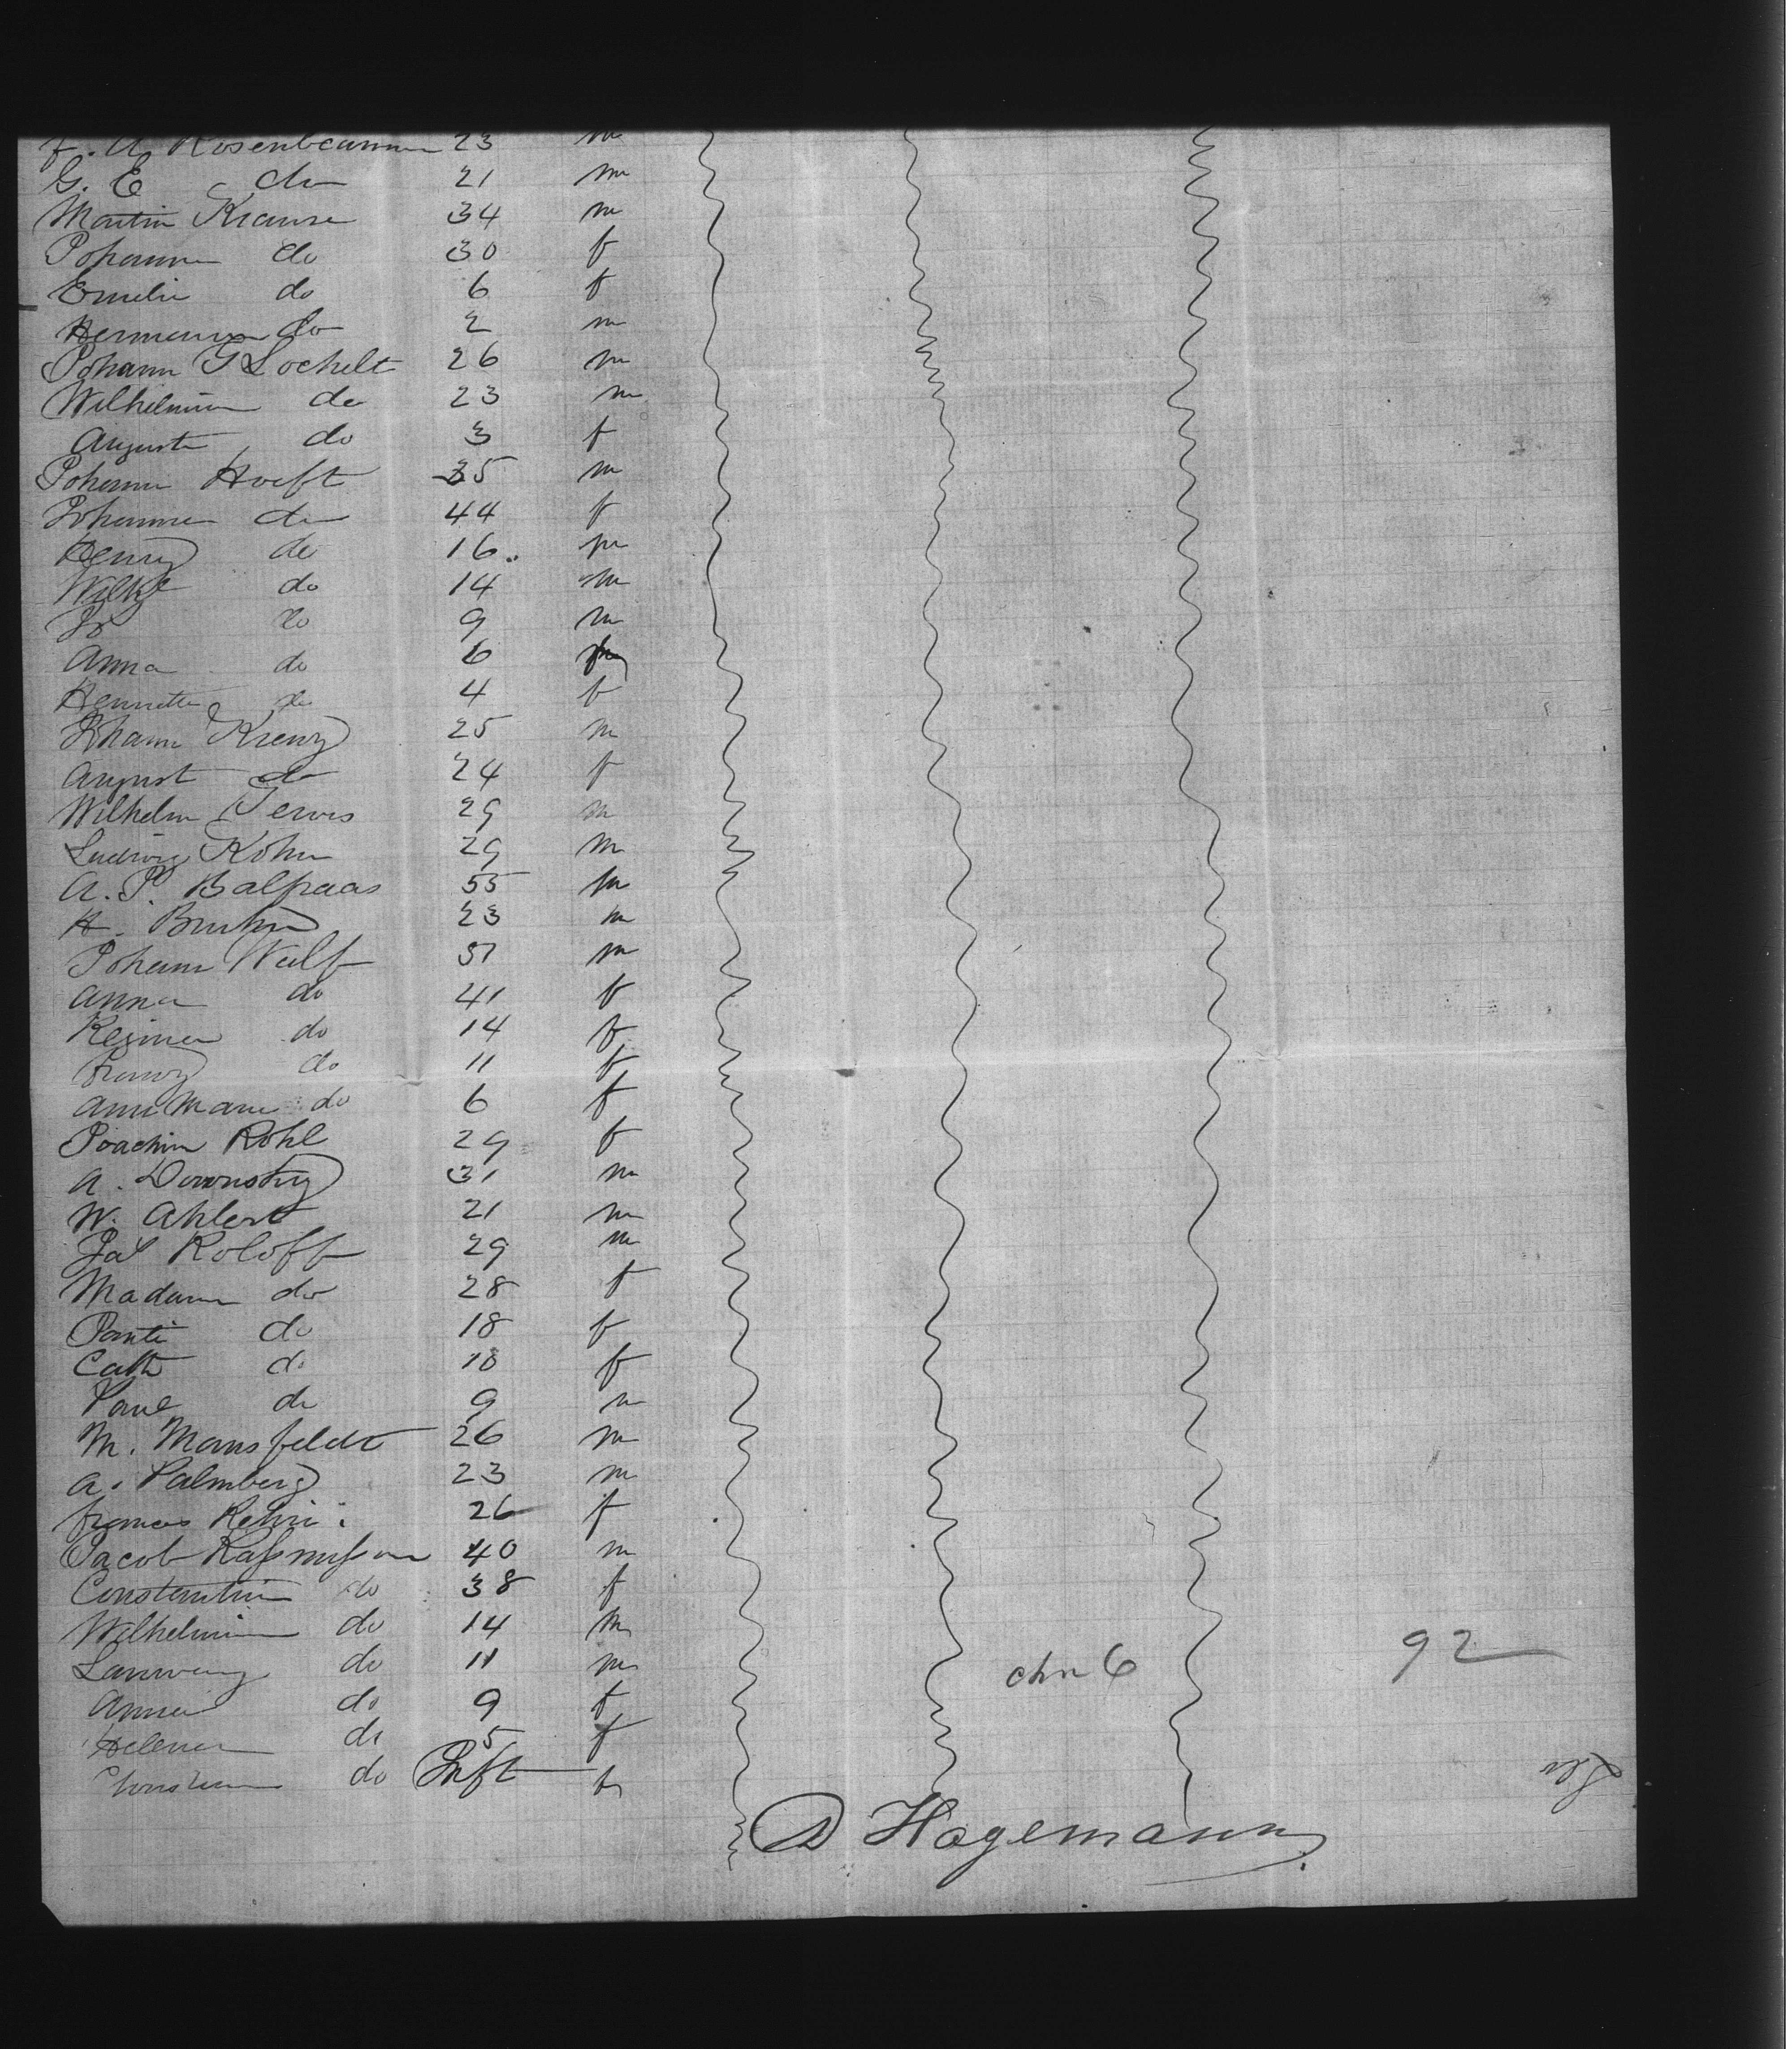 F. A. Rosenbaum 23 m
G. E do 21 m
Martin Krause 34 m
Johanna do 30 f
Emilie do 6 f
Hermann do 2 m
Johann G Lochelt 26 m
Wilhelmin do 23 m
Auguste do 3 f
Johann Hoeft 35 m
Johanna do 44 f
Henry do 16 m
do 14 m
do 9 m
Anna do 6
Henriette do 4 f
Johann Krenz 25 m
August do 24 f
Wilhelm 29 m
Ludwig Kohn 29 m
A. P. Balpaas 55 m
H. Bruhn 23 m
Johann Wulf 51 m
Anna do 41 f
Regina do 14 f
do 11 f
Ann Marie do 6 f
Joachim Rohl 29 f
A. 31 m
W. Ahlert 21 m
Roloff 29 m
Madam do 28 f
do 18 f
Cath do 10 f
Paul do 9 m
M. Mansfeldt 26 m
A. Palmberg 23 m
Frances 26 f
Jacob Raſsmuſsen 40 m
Constantin do 38 f
Wilhelmin do 14 m
do 11 m
Anna do 9 f
Helena do 5 f
do Inft f
6
92
D Hagemann